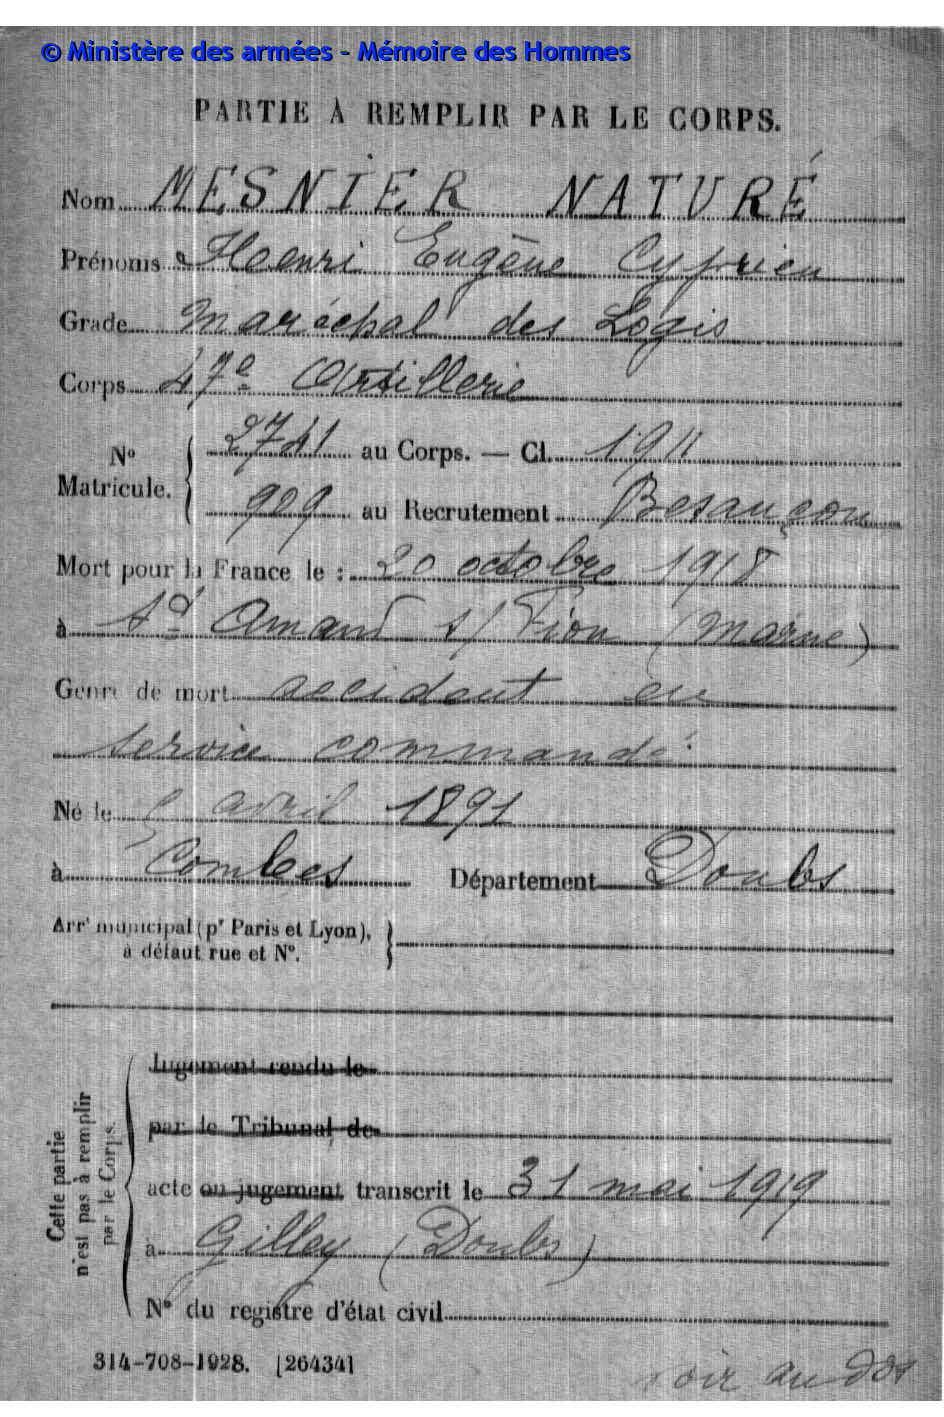 © Ministère des armées - Mémoire des Hommes
PARTIE À REMPLIR PAR LE CORPS.
Nom MESNIER NATURÉ
Prénoms Henri Eugène Cyprien
Grade Maréchal des Logis
Corps 47e Artillerie
No Matricule. 2741 au Corps. — Cl. 1911
909 au Recrutement Besançon
Mort pour la France le : 20 octobre 1918
à St Amand s/ Fion (Marne)
Genre de mort accident en
service commandé
Né le avril 1891
à Combes Département Doubs
Arrt municipal (pr Paris et Lyon),
à défaut rue et No.
Cette partie
n'est pas à remplir
par le Corps.
Jugement rendu le
par le Tribunal de
acte ou jugement transcrit le 31 mai 1919
à Gilley (Doubs)
No du registre d'état civil
314-708-1928. [26434]
voir au dos